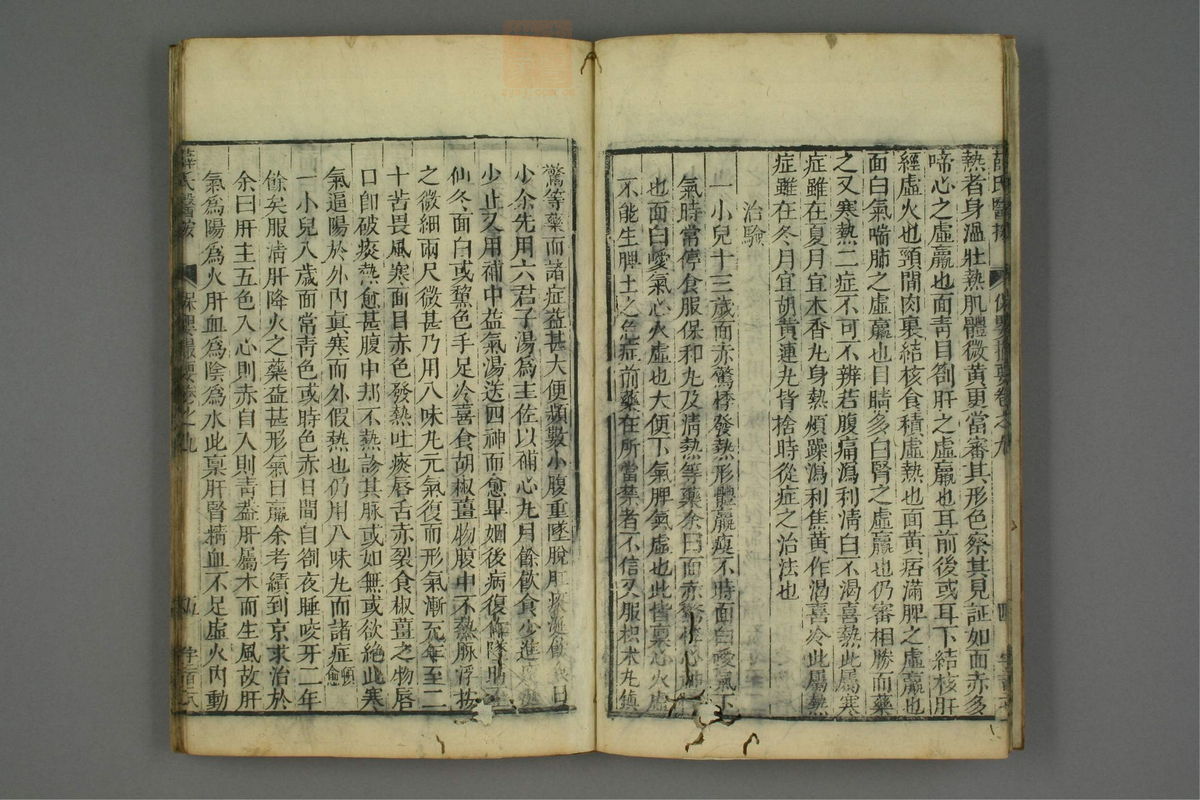 薛氏醫按 保嬰撮要卷之九 四
熱者身溫壯熱肌體微黃更當審其形色察其見証如面赤多
啼心之虛羸也面青目劄肝之虛羸也耳前後或耳下結核肝
經虛火也頸間肉裏結核食積虛熱也面黃痞滿脾之虛羸也
面白氣喘肺之虛羸也目睛多白腎之虛羸也仍審相勝而藥
之又寒熱二症不可不辨若腹痛瀉利清白不渴喜熱此屬寒
症雖在夏月宜木香丸身熱煩躁瀉利焦黃作渴喜冷此屬熱
症雖在冬月宜胡黃連丸皆捨時從症之治法也
治驗
一小兒十三歲面赤驚悸發熱形體羸瘦不時面白噯氣下
氣時常停食服保和丸及清熱等藥余曰面赤驚悸心
也面白噯氣心火虛也大便下氣脾氣虛也此皆禀心火虛
不能生脾土之危症前藥在所當禁者不信又服枳朮丸鎮
驚等藥而諸症益甚大便頻數小腹重墜脫肛痰涎飲食日
少余先用六君子湯爲主佐以補心丸月餘飲食少進
少止又用補中益氣湯送四神而愈畢姻後病復
仙冬面白或黧色手足冷喜食胡椒薑物腹中不熱脉浮按
之微細兩尺微甚乃用八味丸元氣復而形氣漸充年至二
十苦畏風寒面目赤色發熱吐痰唇舌赤裂食椒薑之物唇
口卽破痰熱愈甚腹中却不熱診其脉或如無或欲絕此寒
氣逼陽於外內眞寒而外假熱也仍用八味丸而諸症頓愈
一小兒八歲面常青色或時色赤日間自劄夜睡咬牙二年
餘矣服清肝降火之藥益甚形氣日羸余考績到京求治於
余曰肝主五色入心則赤自入則青蓋肝屬木而生風故肝
氣爲陽爲火肝血爲陰爲水此禀肝腎精血不足虛火內動
薛氏醫按 保嬰撮要卷之九 五